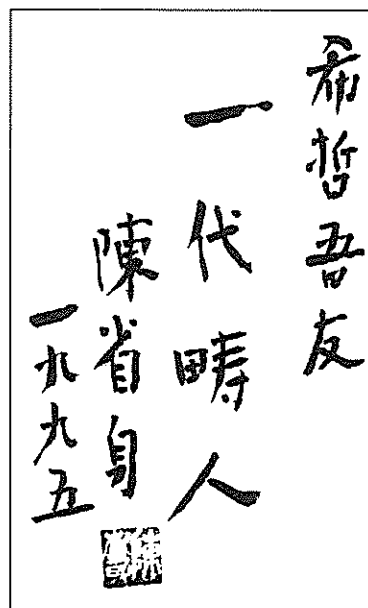 希哲吾友
一代畴人
陳省身
一九九五